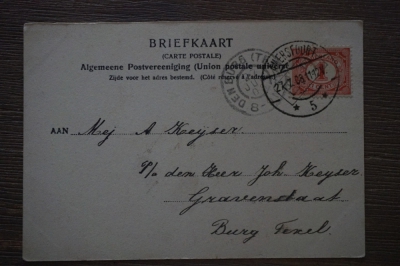 BRIEFKAART
(CARTE POSTALE)
Algemeene Postvereeniging (Union postale univers
Zijde voor het adres bestemd. (Côté réservé à l'adresse.)
AMERSFOORT
1
5
AAN Mej A Keijser
p/a den Heer Joh. Keyser
Gravenstraat
Burg Texel.